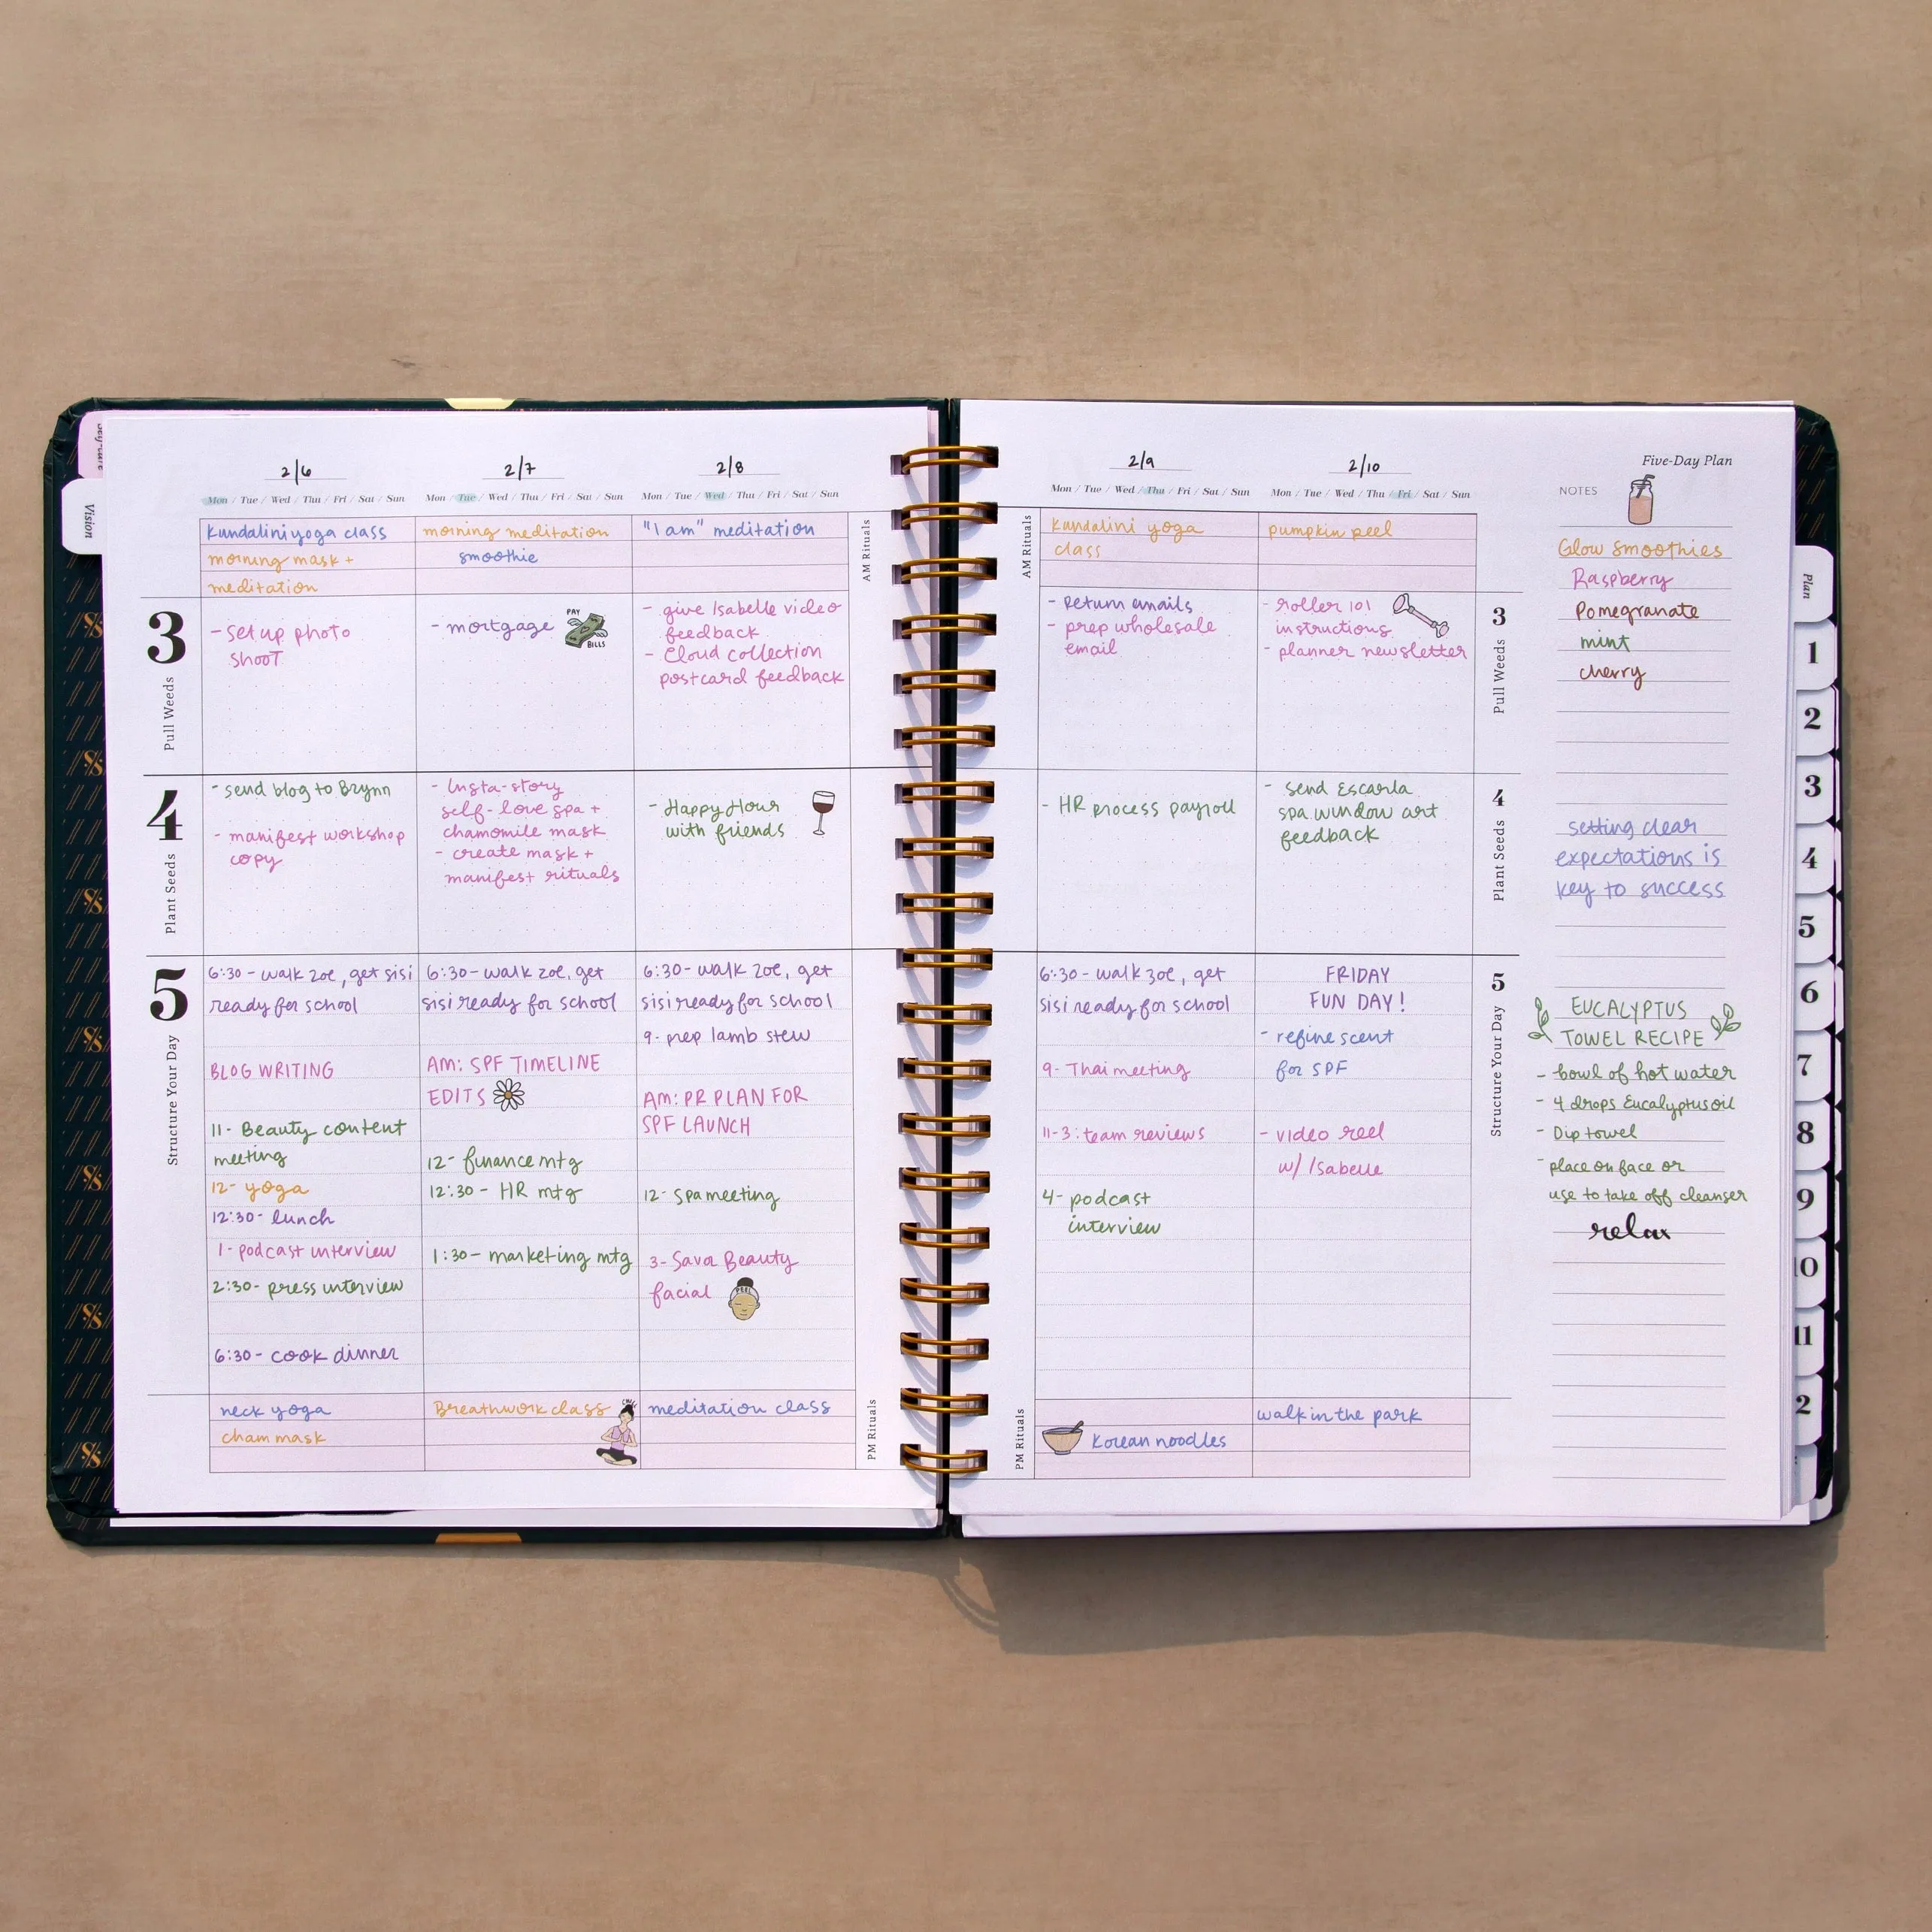 Self-care
Vision
2/6
Mon / Tue / Wed / Thu / Fri / Sat / Sun
Kundalini yoga class
morning mask +
meditation
2/7
Mon / Tue / Wed / Thu / Fri / Sat / Sun
morning meditation
smoothie
2/8
Mon / Tue / Wed / Thu / Fri / Sat / Sun
"I am" meditation
AM Rituals
3
Pull Weeds
- set up photo
shoot
- mortgage
PAY
BILLS
- give Isabelle video
feedback
- Cloud collection
postcard feedback
4
Plant Seeds
- send blog to Brynn
- manifest workshop
copy
- Insta-story
self-love spa +
chamomile mask
- create mask +
manifest rituals
- Happy Hour
with friends
5
Structure Your Day
6:30 - walk zoe, get sisi
ready for school
BLOG WRITING
11- Beauty content
meeting
12- yoga
12:30- lunch
1- podcast interview
2:30- press interview
6:30- cook dinner
6:30- walk zoe, get
sisi ready for school
AM: SPF TIMELINE
EDITS
12- finance mtg
12:30 - HR mtg
1:30- marketing mtg
6:30- walk zoe, get
sisi ready for school
9- prep lamb stew
AM: PR PLAN FOR
SPF LAUNCH
12- spa meeting
3- Savor Beauty
facial
PEEL
neck yoga
cham mask
Breathwork class
meditation class
PM Rituals
2/9
Mon / Tue / Wed / Thu / Fri / Sat / Sun
2/10
Mon / Tue / Wed / Thu / Fri / Sat / Sun
AM Rituals
Kundalini yoga
class
pumpkin peel
- Return emails
- prep wholesale
email
- roller 101
instructions
- planner newsletter
3
Pull Weeds
- HR process payroll
- send Escarla
spa window art
feedback
4
Plant Seeds
6:30 - walk zoe, get
sisi ready for school
9- Thai meeting
11-3: team reviews
4- podcast
interview
FRIDAY
FUN DAY!
- refine scent
for SPF
- video reel
w/ Isabelle
5
Structure Your Day
PM Rituals
Korean noodles
walk in the park
Five-Day Plan
NOTES
Glow smoothies
Raspberry
Pomegranate
mint
cherry
setting clear
expectations is
key to success
EUCALYPTUS
TOWEL RECIPE
- bowl of hot water
- 4 drops Eucalyptus oil
- Dip towel
- place on face or
use to take off cleanser
relax
Plan
1
2
3
4
5
6
7
8
9
10
11
2